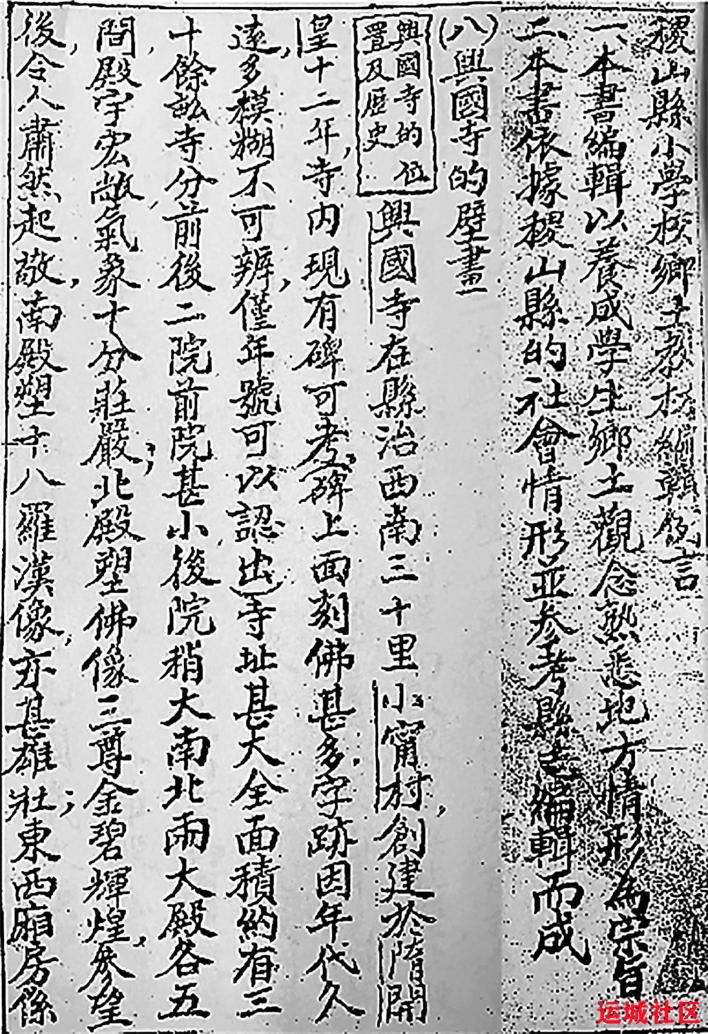 稷山縣小學校鄉土教材編輯例言
一、本書編輯以養成學生鄉土觀念熟悉地方情形為宗旨
二、本書依據稷山縣的社會情形並参考縣志編輯而成
(八)興國寺的壁畫
興國寺的位
置及歷史
興國寺在縣治西南三十里小甯村,創建於隋開
皇十二年,寺内現有碑可考,碑上面刻佛甚多,字跡因年代久
遠,多模糊不可辨,僅年號可以認出,寺址甚大全面積約有三
十餘畝寺分前後二院前院甚小後院稍大南北兩大殿各五
間,殿宇宏敞氣象十分莊嚴;北殿塑佛像三尊金碧輝煌,參望
後令人肅然起敬,南殿塑十八羅漢像,亦甚雄壯;東西廂房係
运城社区